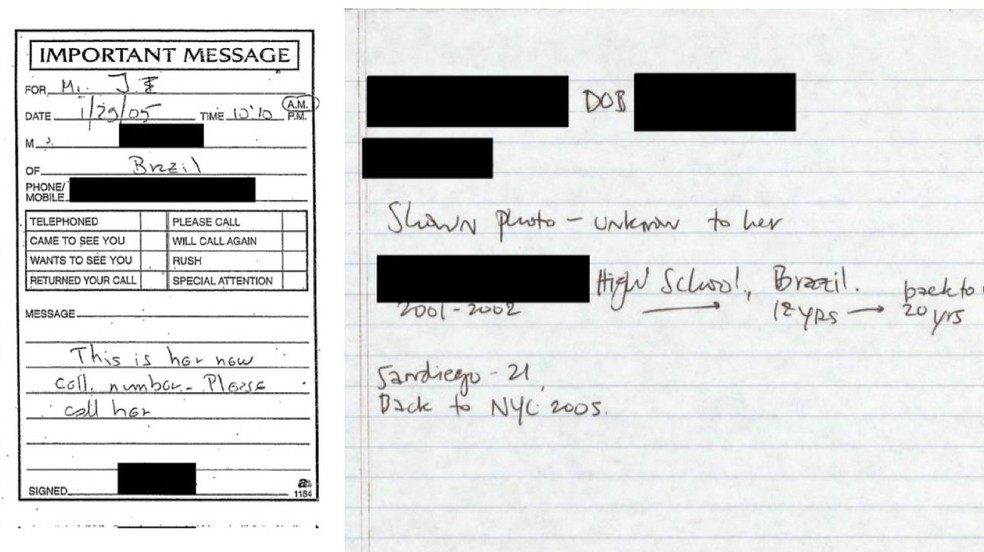 IMPORTANT MESSAGE
FOR Mr. JE
DATE 1/29/05 TIME 10:10 A.M. P.M.
M
OF Brazil
PHONE/ MOBILE
TELEPHONED PLEASE CALL
CAME TO SEE YOU WILL CALL AGAIN
WANTS TO SEE YOU RUSH
RETURNED YOUR CALL SPECIAL ATTENTION
MESSAGE
This is her new
cell. number. Please
call her
SIGNED
1184
DOB
Shown photo - unknown to her
High School, Brazil. back to
2001-2002 → 12 yrs → 20 yrs
Sandiego - 21
Back to NYC 2005.